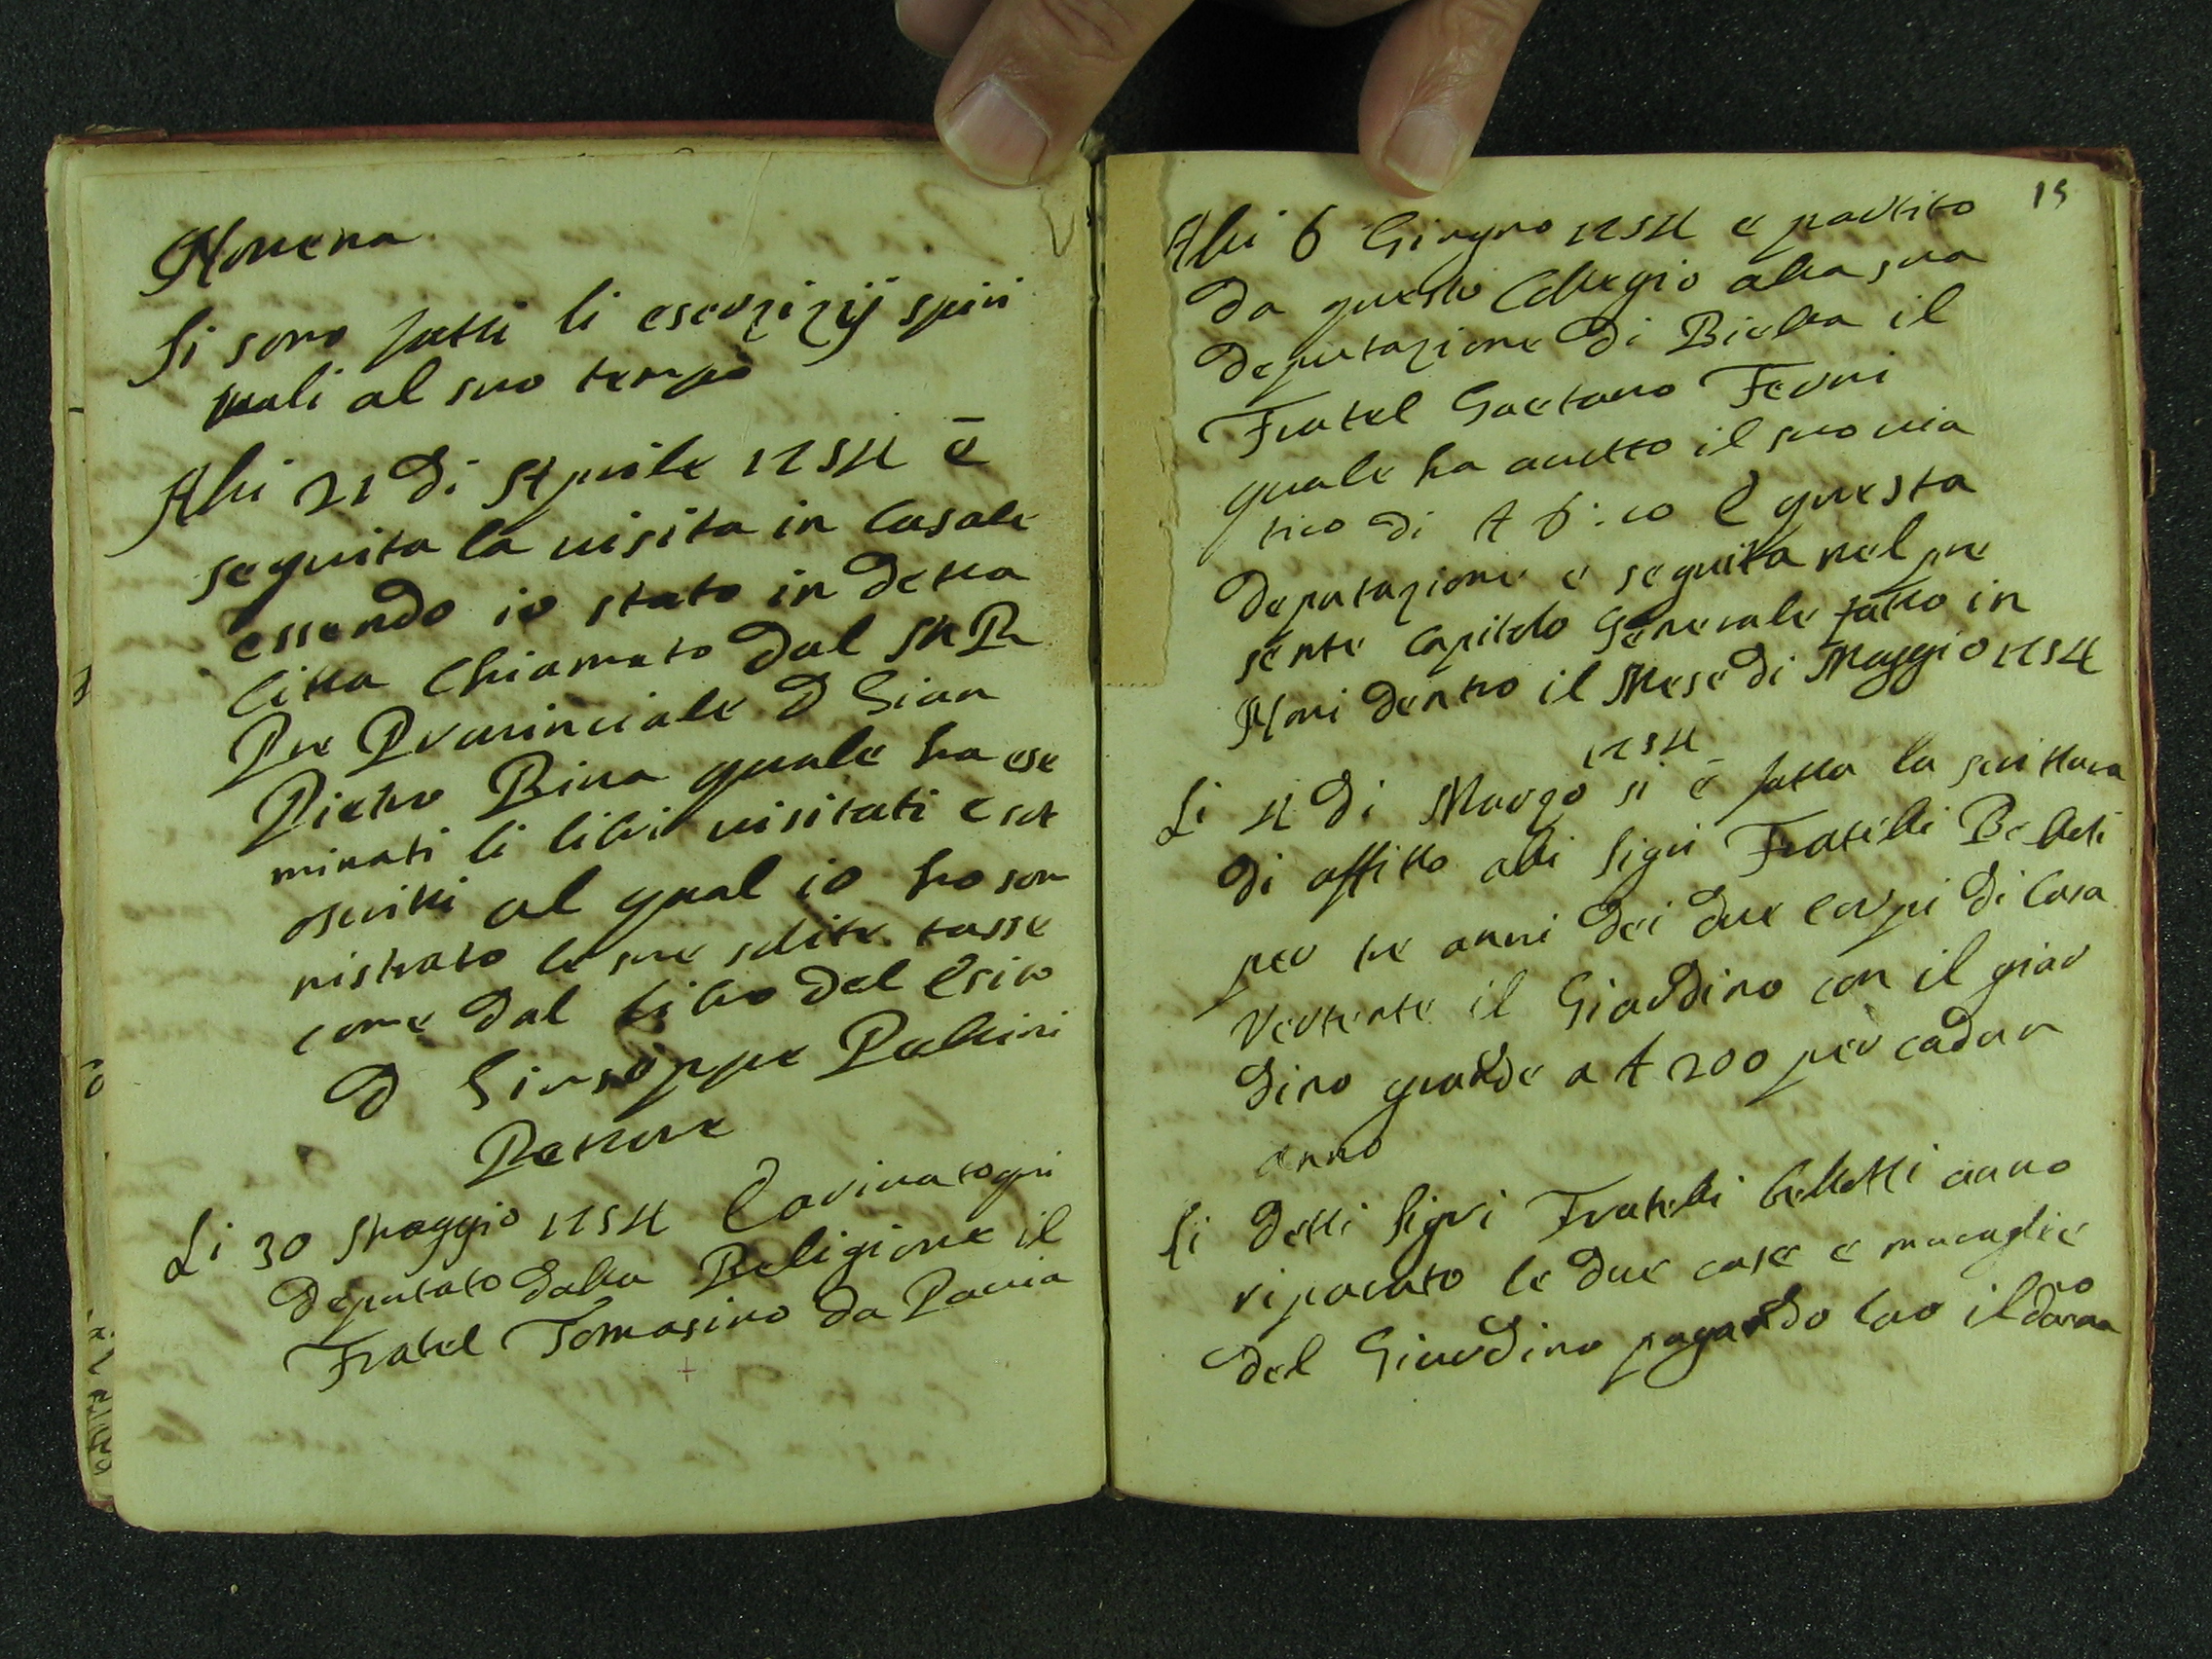 Novena
Si sono fatti li esercizij spiri
tuali al suo tempo
Alli 21 di Aprile 1754 è
seguita la visita in Casale
essendo io stato in detta
Citta Chiamato dal M R
Pre Provinciale D Gian
Pietro Riva quale ha esa
minati li libri visitati e sot
oscritti al qual io ho som
nistrato le sue solite tasse
come dal Libro del Esito
D Giuseppe Pallini
Rettore
Li 30 Maggio 1754 E arivato qui
deputato dalla Religione il
Fratel Tomasino da Pavia
15
Alli 6 Giugno 1754 e partito
da questo Collegio alla sua
deputazione di Biella il
Fratel Gaetano Ferri
quale ha avutto il suo via
tico di £ 6:10 E questa
deputazione e seguita nel pre
sente Capitolo Generale fatto in
Novi dentro il Mese di Maggio 1754
1754
Li 4 di Marzo si è fatta la scrittura
di affitto alli Sigri Fratelli Belleti
per tre anni dei due corpi di Casa
vertente il Giardino con il giar
dino grande a £ 200 per cadun
anno
Li detti Sigri Fratelli belletti anno
riparato le due case e muraglie
del Giardino pagando loro il dana
ro